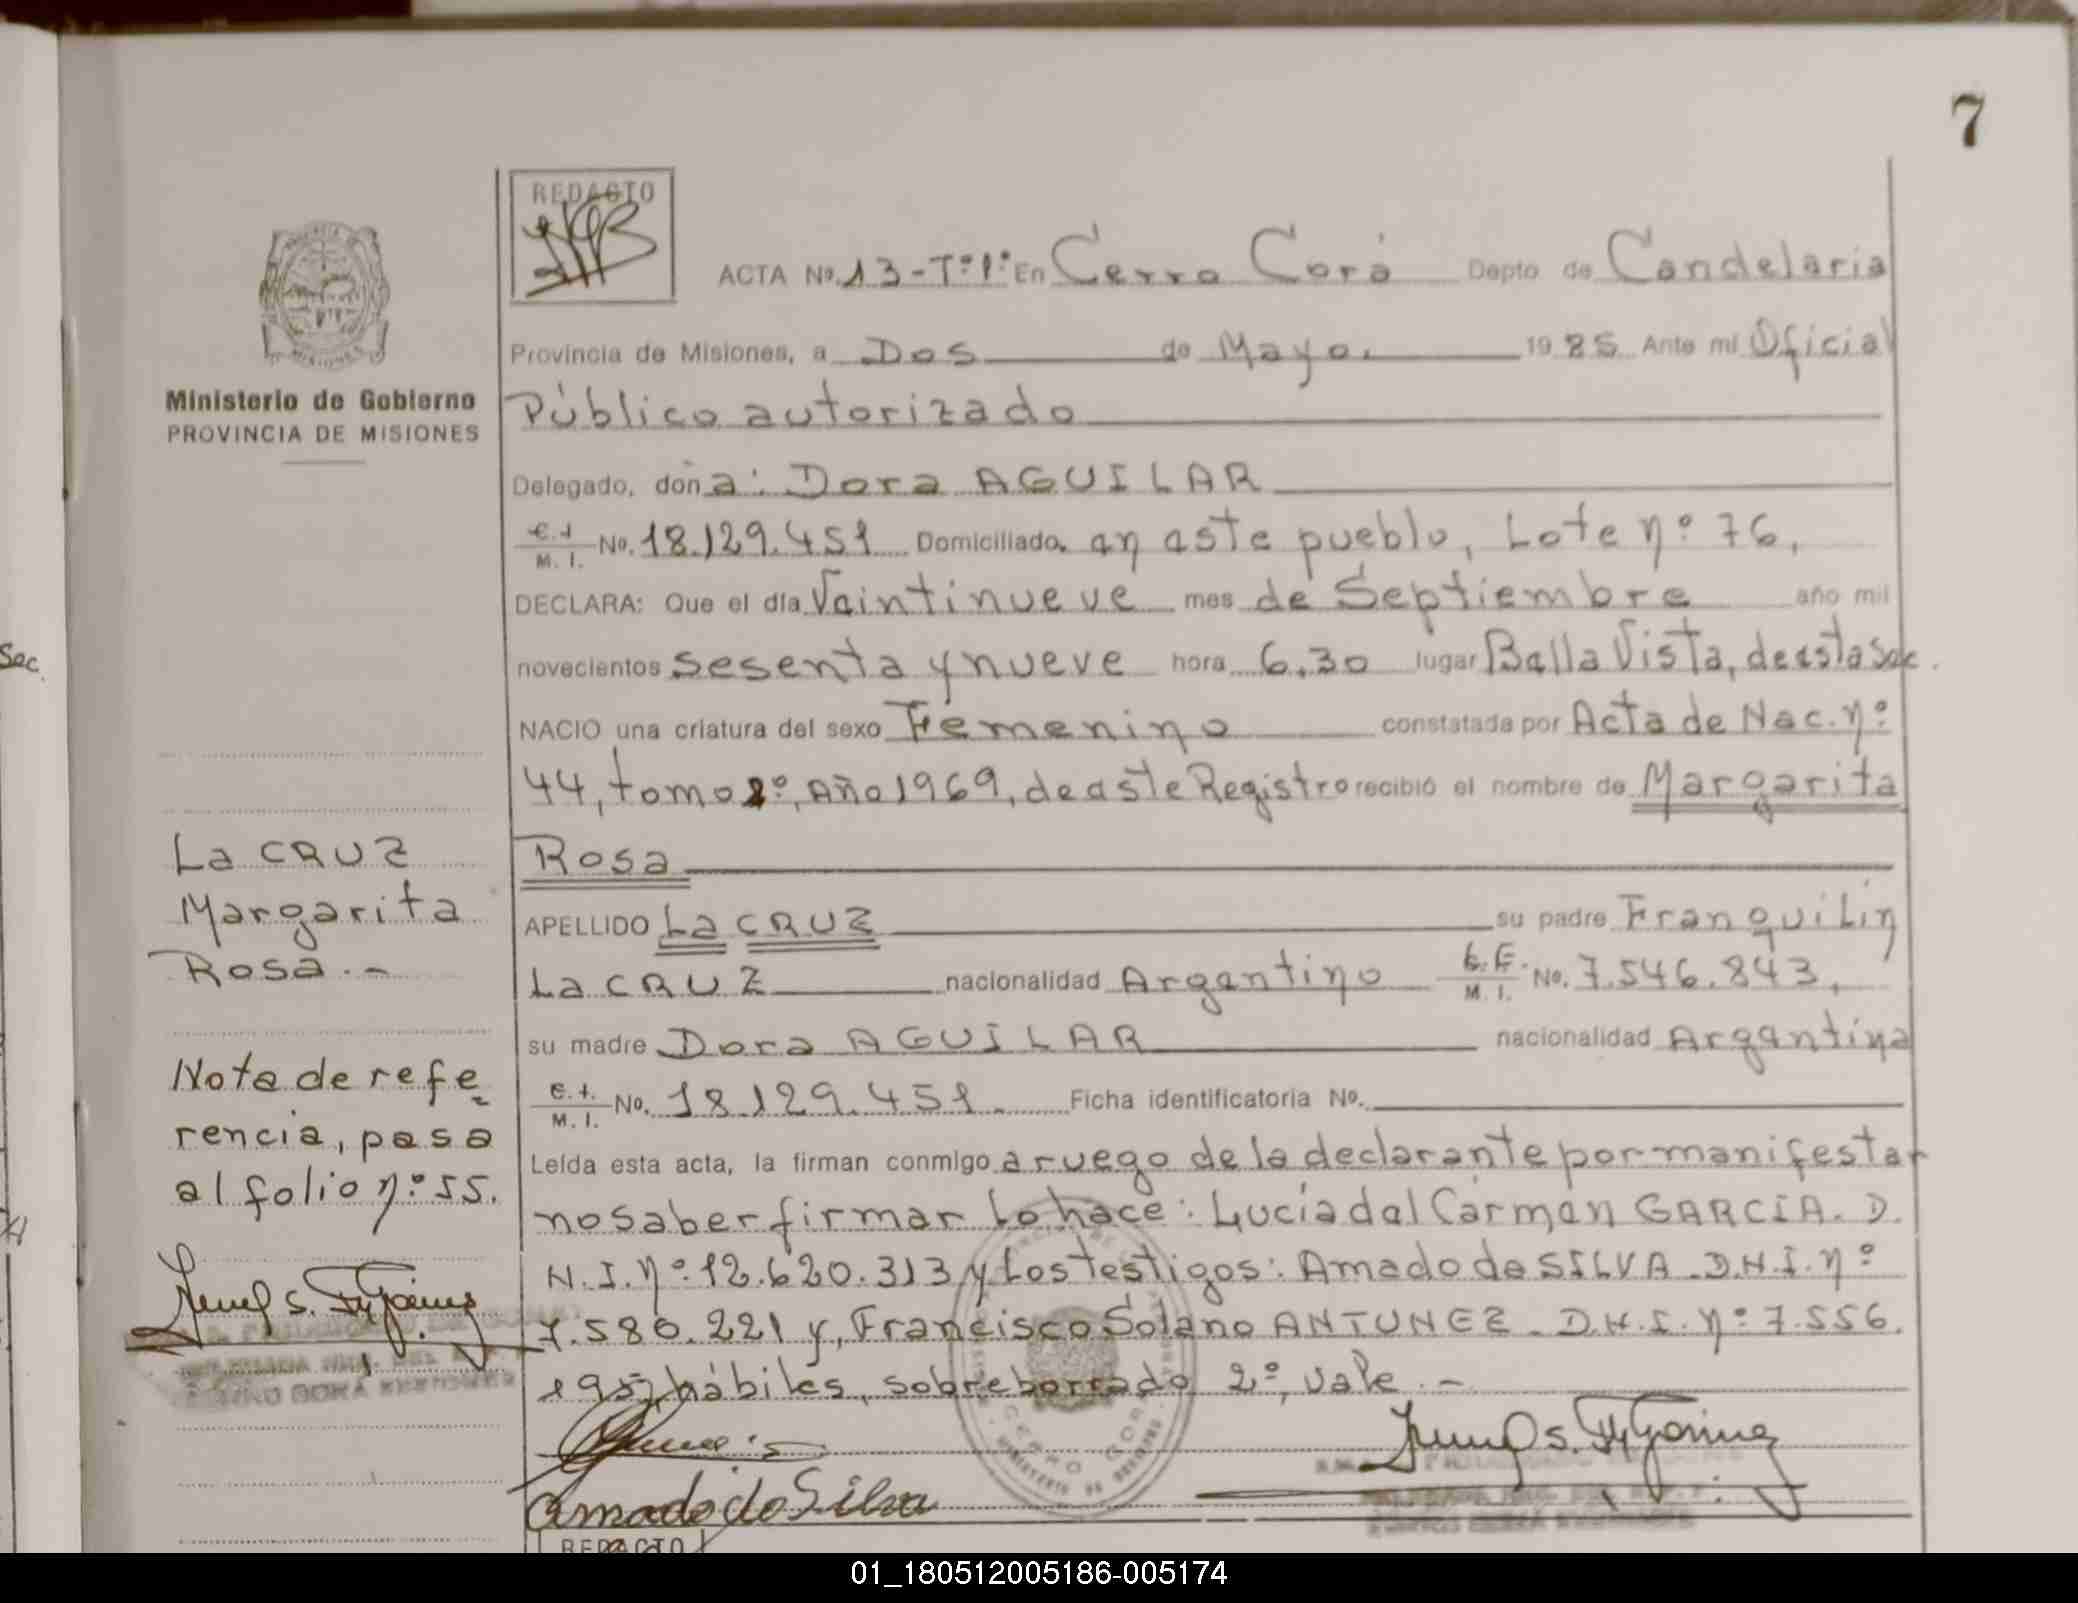 7
REDACTO
ACTA Nº. 13-Tº1º En Cerro Corá Depto de Candelaria
Provincia de Misiones, a Dos de Mayo. 1985 Ante mi Oficial
Público autorizado
Delegado, doña: Dora AGUILAR
C.I. M. I. No. 18.129.451 Domiciliado. en este pueblo, Lote nº 76,
DECLARA: Que el día Veintinueve mes de Septiembre año mil
novecientos sesenta y nueve hora 6.30 lugar Bella Vista, de esta Sec.
NACIO una criatura del sexo Femenino constatada por Acta de Nac. nº
44, tomo 2º, Año 1969, de este Registro recibió el nombre de Margarita
Rosa
APELLIDO La CRUZ su padre Franquilin
La CRUZ nacionalidad Argentino L.E. M. I. No. 7.546.843,
su madre Dora AGUILAR nacionalidad Argentina
C.I. M. I. No. 18.129.451. Ficha identificatoria No.
Leída esta acta, la firman conmigo a ruego de la declarante por manifestar
no saber firmar Lo hace: Lucía del Cármen GARCIA. D.
N.I. nº 12.620.313 y Los testigos: Amado da SILVA. D.N.I. nº
7.580.221 y, Francisco Solano ANTUNEZ. D.N.I. nº 7.556.
195, hábiles, sobreborrado 2º, vale.-
Amado do Silva
REDACTO
Ministerio de Gobierno
PROVINCIA DE MISIONES
La CRUZ
Margarita
Rosa.-
Nota de refe
rencia, pasa
al folio nº 55.
Sec.
CERRO CORA
01_180512005186-005174